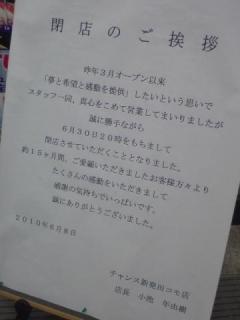 閉店のご挨拶
昨年3月オープン以来
「夢と希望と感動を提供」したいという思いで
スタッフ一同、真心をこめて営業してまいりましたが
誠に勝手ながら
6月30日20時をもちまして
閉店させていただくこととなりました。
約15ヶ月間、ご愛顧いただきましたお客様方々より
たくさんの感動をいただきまして
感謝の気持ちでいっぱいです。
誠にありがとうございました。
2010年6月8日
チャンス新発田コモ店
店長 小池 年由樹